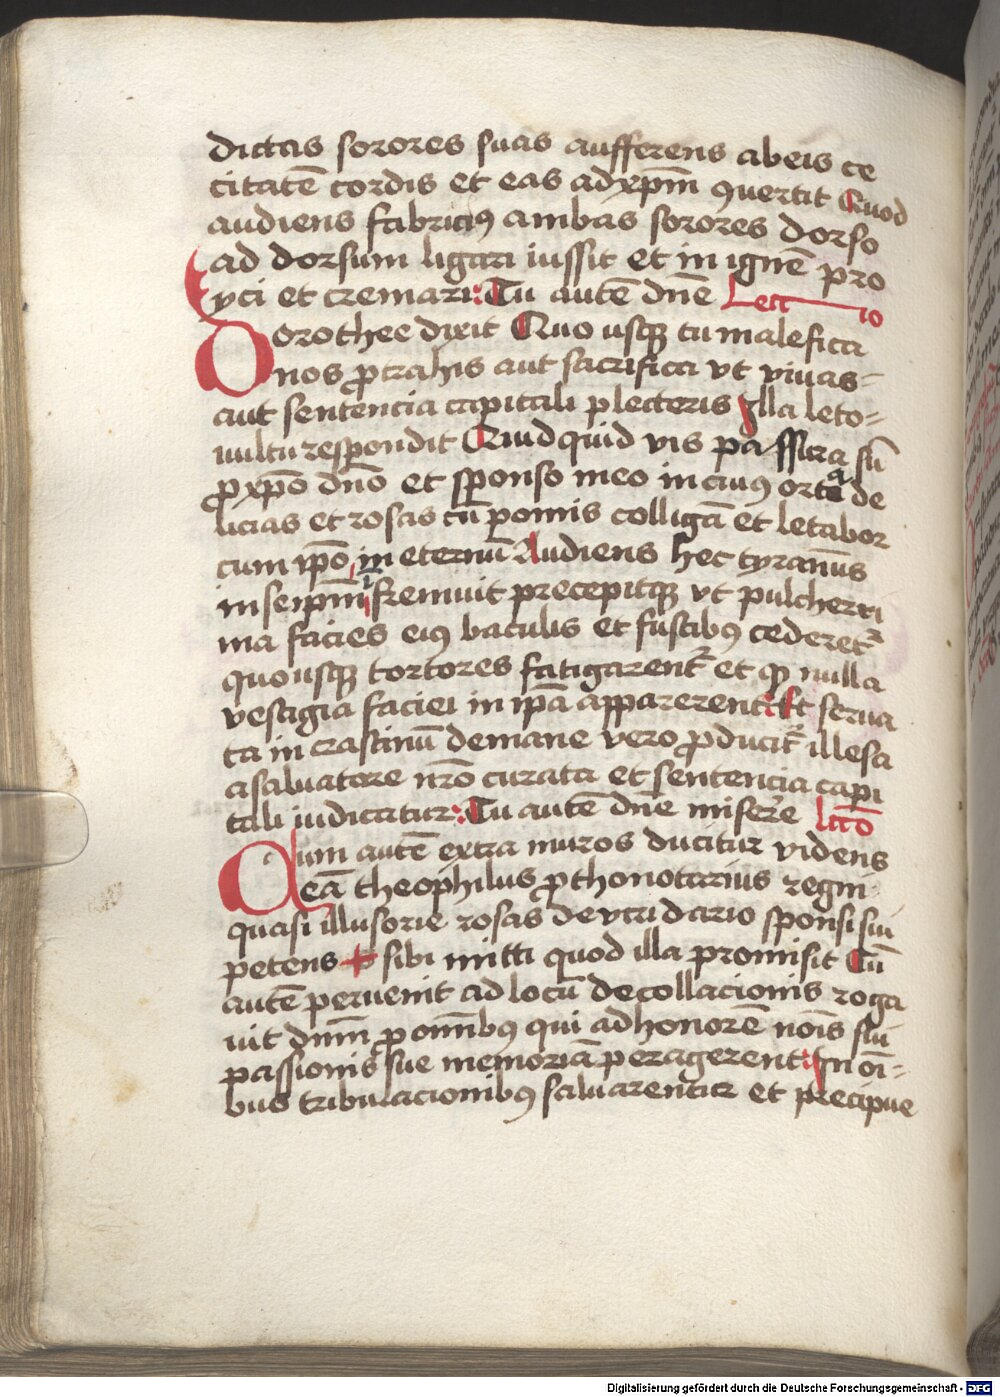 dictas sorores suas aufferens ab eis ce
citatē cordis et eas ad xp̄m ꝯuertit Quod
audiens fabriciꝰ ambas sorores dorso
ad dorsum ligari iussit et in ignē pro
yci et cremari: Tu autē dn̄e Lectio
Dorothee dixit Quo usqꝫ tu malefica
nos ꝓtrahis aut sacrifica vt viuas
aut sentencia capitali plecteris Illa leto
uultu respondit Quidquid vis passura sū
ꝓ xp̄o dn̄o et sponso meo in cuiꝰ orto de
licias et rosas cū pomis colligā et letabor
cum ip̄o in eternū Audiens hec tyrannus
in seip̄m fremuit precepitqꝫ vt pulcherri
ma facies eiꝰ baculis et fustibꝰ cederet᷑
quousqꝫ tortores fatigarent᷑ et ꝙ nulla
vestigia faciei in ip̄a apparerent: Et serua
ta in crastinū de mane vero ꝓducit᷑ illesa
a saluatore nr̄o curata et sentencia capi
tali iudicatur: Tu autē dn̄e miserͤe lcō
Qum autē extra muros ducitur videns
eā theophilus ꝓthonotarius regni
quasi illusorie rosas de viridario sponsi sui
petens sibi mitti quod illa promisit Cū
autē peruenit ad locū decollacionis roga
uit dn̄m ꝓ omībꝰ qui ad honorē nois̄ sui
passionis sue memoriā peragerent: In oī
bus tribulacionibꝰ saluarentur et precipue
Digitalisierung gefördert durch die Deutsche Forschungsgemeinschaft - DFG